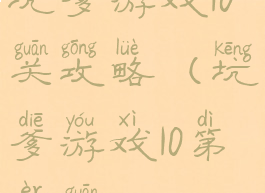 坑爹游戏10
guān gōng lüè kēng
关攻略（坑
diē yóu xì dì
爹游戏10第
èr guān